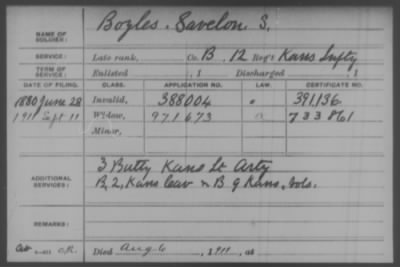 Boyles, Savelon S.
NAME OF SOLDIER:
SERVICE: Late rank, Co. B, 12 Reg't Kans Infty
TERM OF SERVICE: Enlisted , 1 Discharged , 1
DATE OF FILING. CLASS. APPLICATION NO. LAW. CERTIFICATE NO.
1880 June 28 Invalid, 388004 391136
1911 Sept 11 Widow, 971673 733861
Minor,
ADDITIONAL SERVICES: 3 Batty Kans Lt Arty
B, 2, Kans Cav & B 9 Kans. Vols.
REMARKS:
Died Aug 6, 1911, at